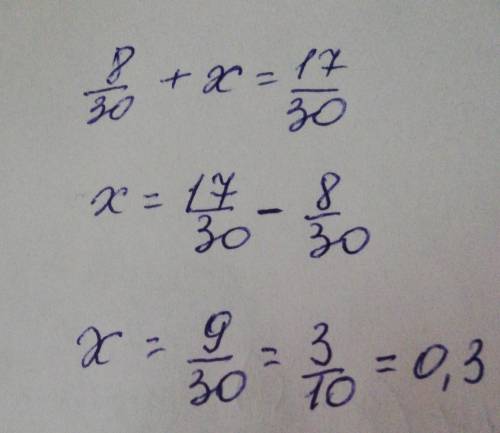 8/30 + x = 17/30
x = 17/30 - 8/30
x = 9/30 = 3/10 = 0,3